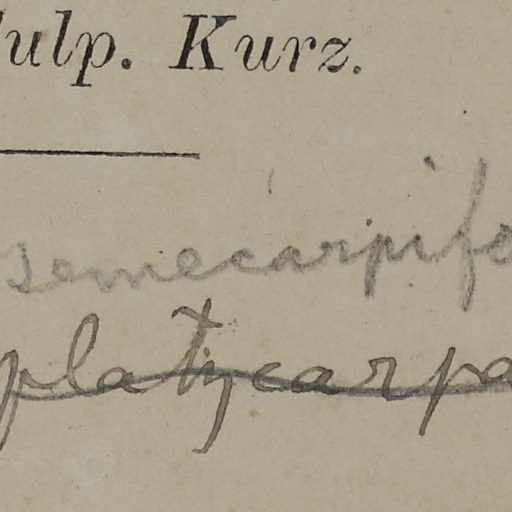 ulp. Kurz.
semecarpife
platycarpa